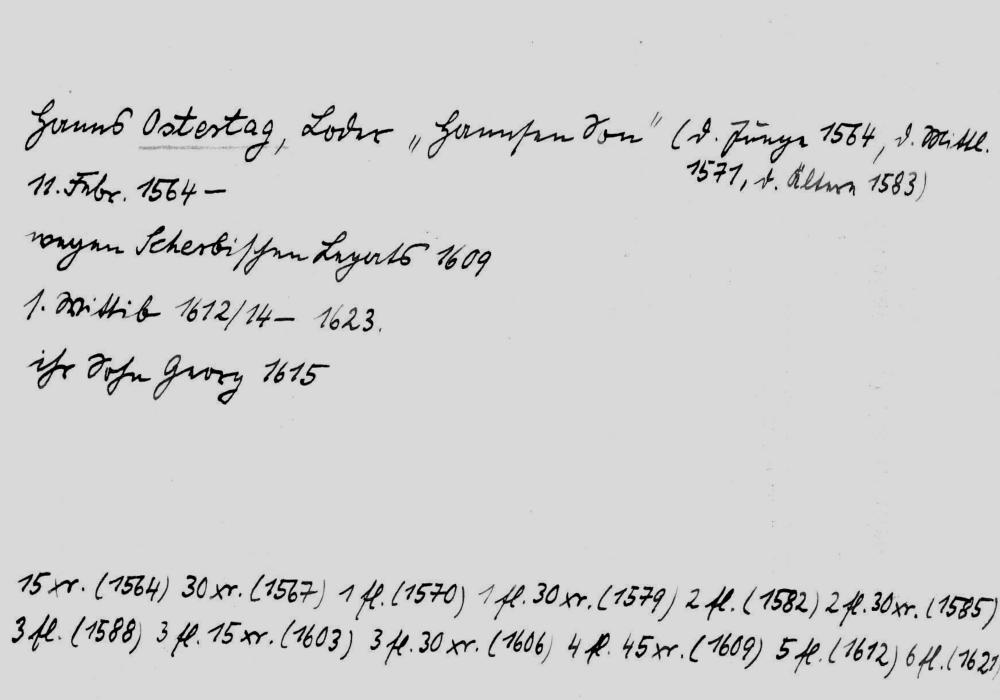 Hanns Ostertag, Loder „Hannsen Son" (d. Junge 1564, d. Mittl.
1571, d. Ältere 1583)
11. Febr. 1564 –
wegen Scherbischen Legats 1609
s. Wittib 1612/14 – 1623.
ihr Sohn Georg 1615
15 xr. (1564) 30 xr. (1567) 1 fl. (1570) 1 fl. 30 xr. (1579) 2 fl. (1582) 2 fl. 30 xr. (1585)
3 fl. (1588) 3 fl. 15 xr. (1603) 3 fl. 30 xr. (1606) 4 fl. 45 xr. (1609) 5 fl. (1612) 6 fl. (1621